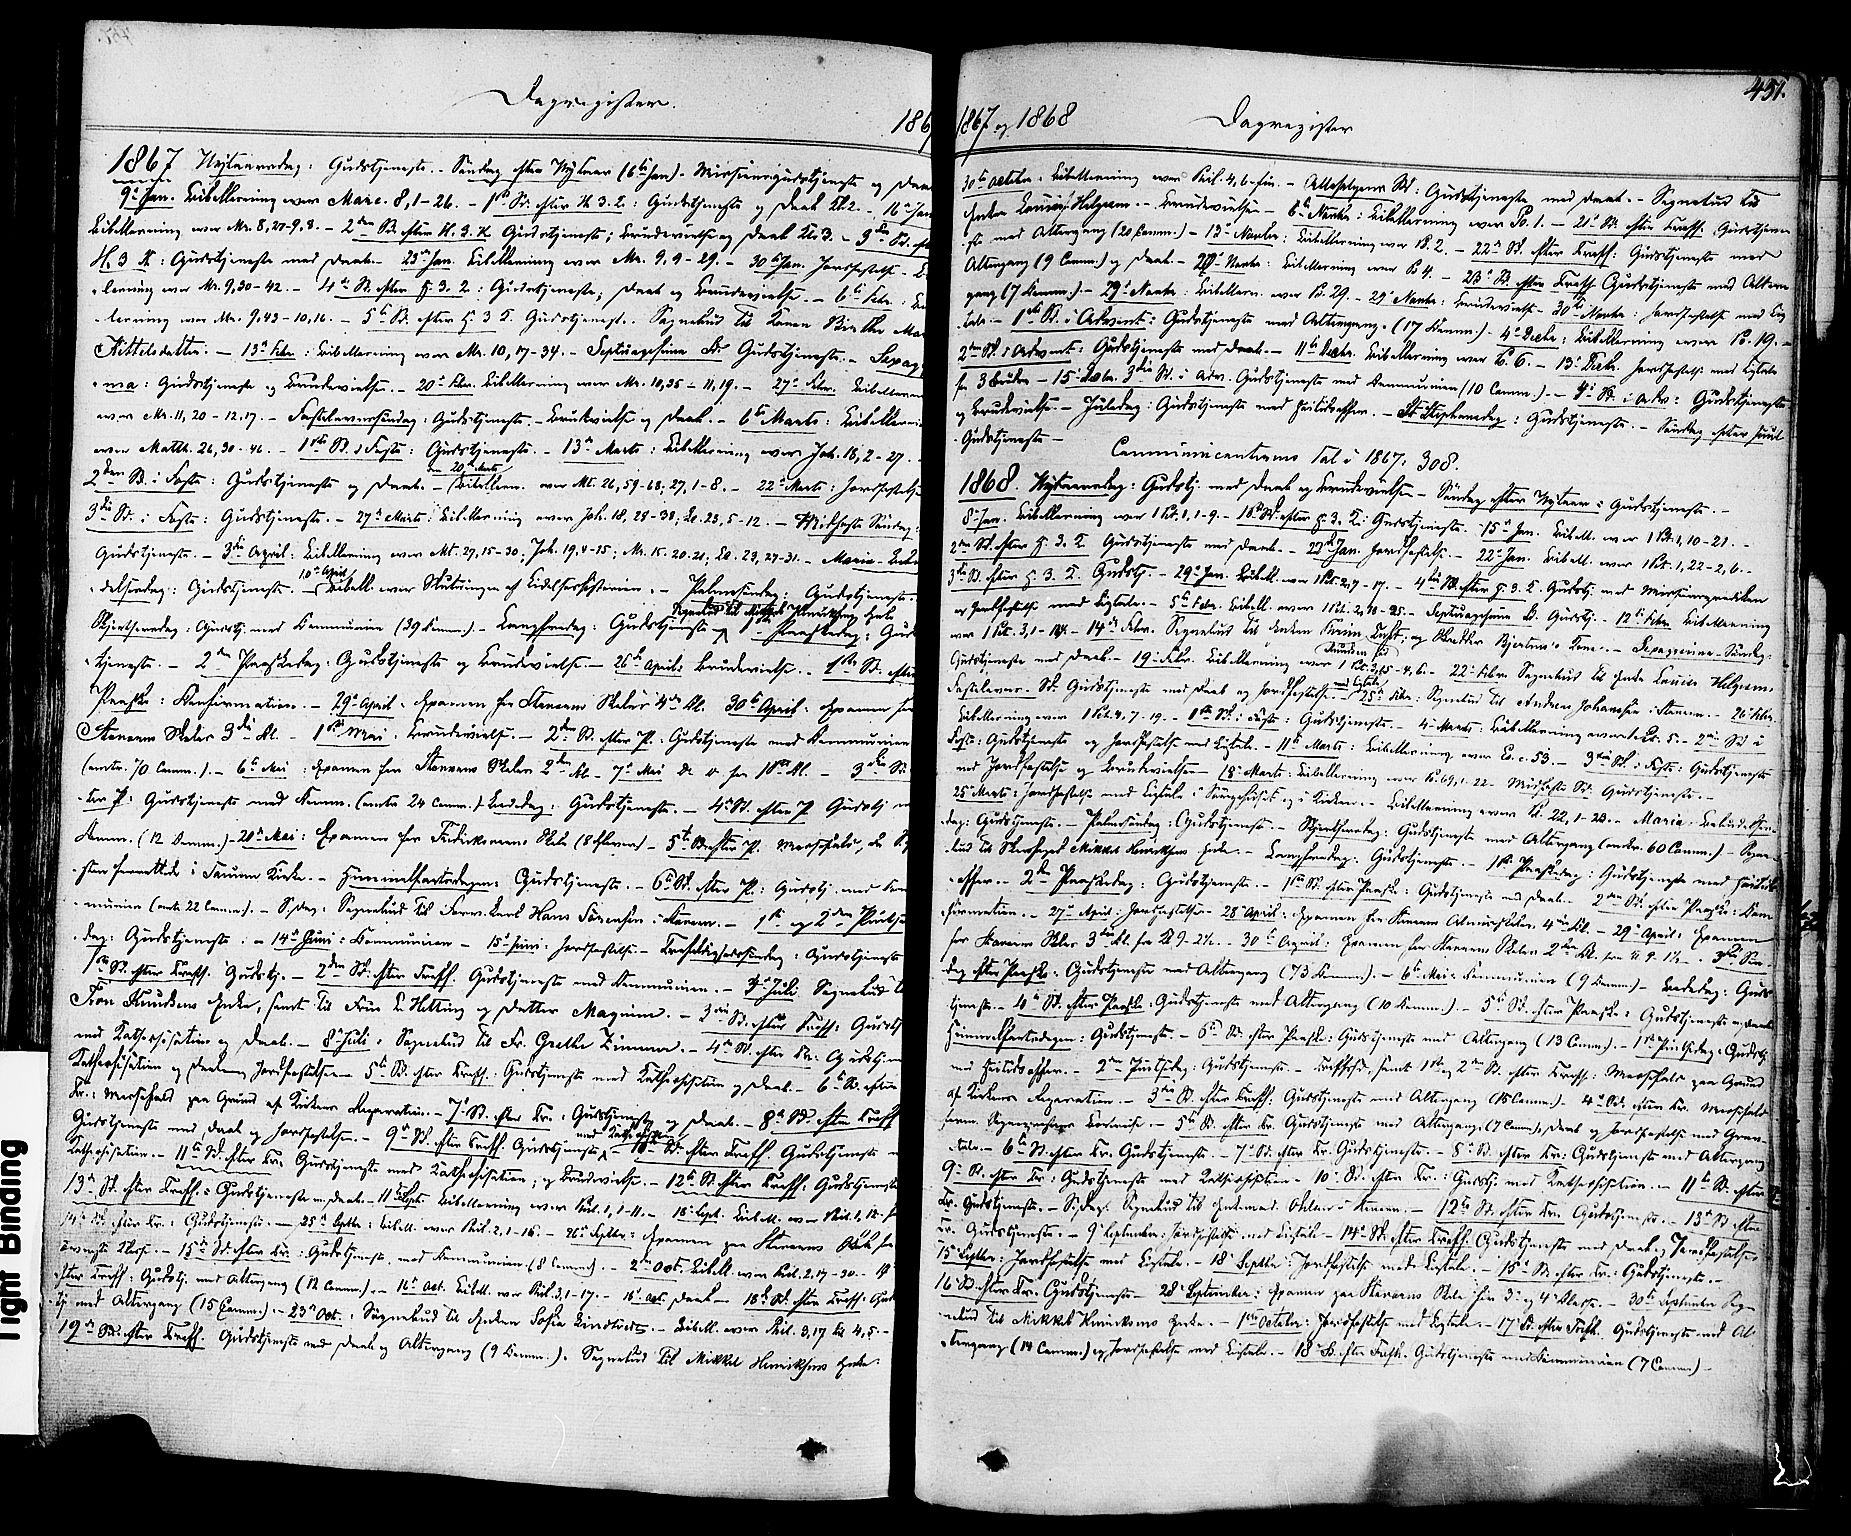 Dagregister.
186
1867 Nytaarsdag: Gudstjeneste. - Søndag efter Nytaar (6te Jan) - Missionsgudstjeneste og Daab
9de Jan. Bibellæsning over Marc. 8,1-26. - 1ste Sd. efter H. 3. K.: Gudstjeneste og Daab Kl. 2. - 16de Jan
Bibellæsning over Mr. 8,27-9,8. - 2den Sd. efter H. 3. K. Gudstjeneste; Brudevielse og Daab Kl. 3. - 3die Sd. eft
H. 3 K.: Gudstjeneste med Daab. - 23de Jan. Bibellæsning over Mr. 9,9-29. - 30te Jan. Jordfæstelse -
læsning over Mr. 9,30-42. - 4de Sd. efter H. 3. K.: Gudstjeneste; Daab og Brudevielse. - 6te Febr.:
læsning over Mr. 9,43-10,16. - 5te Sd. efter H. 3 K. Gudstjenest. Sognebud til Konen Birthe Mar
Kittelsdatter. - 13de Febr.: Bibellæsning over Mr. 10,17-34. - Septuagesima Sd. Gudstjeneste. - Sexag
ma: Gudstjeneste og Brudevielse. - 20de Febr. Bibellæsning over Mr. 10,35-11,19. - 27de Febr. Bibellæsn
over Mr. 11,20-12,17. - Fastelavnssøndag: Gudstjeneste. - Brudevielse og Daab. - 6te Marts: Bibellæsn
over Matth. 26,30-46. - 1ste Sd. i Faste: Gudstjeneste. - 13de Marts: Bibellæsning over Joh. 18,2-27.
den 20de Marts
2den Sd. i Faste: Gudstjeneste og Daab. - Bibellæsn. over Mt. 26,59-68; 27,1-8. - 22de Marts: Jordfæstelse
3die Sd. i Faste: Gudstjeneste. - 27de Marts: Bibellæsning over Joh. 18,28-38; Lc. 23,5-12. - Midfaste Søndag:
Gudstjeneste. - 3die April: Bibellæsning over Mt. 27,15-30; Joh. 19,4-15; Mr. 15,20.21; Lc. 23,27-31. - Mariæ-Beb
10de April
delsesdag: Gudstjeneste. - Bibell. over Slutningen af Lidelseshistorien. - Palmesøndag: Gudstjeneste.
Sognebud til Mikkel Henriksens Hele
Skjærthorsdag: Gudstj. med Kommunion (39 Komm.) - Langfredag: Gudstjeneste - 1ste Paaskedag: Gud
tjeneste. - 2den Paaskedag: Gudstjeneste og Brudevielse - 26de April: Brudevielse. - 1ste Sd. efter
Paaske: Konfirmation. - 29de April: Examen for Stavern Skoles 4de Kl. 30te April: Examen for
Stavern Skoles 3die Kl. - 1ste Mai: Brudevielse. - 2den Sd. efter P.: Gudstjeneste med Kommunion
(omtr. 70 Comm.). - 6te Mai: Examen for Staverns Skoles 2den Kl. - 7de Mai Do for 1ste Kl. - 3die Sd
ter P.: Gudstjeneste med Komm. (omtr 24 Comm.) Bededag: Gudstjeneste. - 4de Sd. efter P. Gudstj
Komm. (12 Comm.) - 20de Mai: Examen for Fredriksværns Skole - 5te Sd. efter P. Messefald, da
sten forrettede i Tanum Kirke. - Himmelfartsdagen: Gudstjeneste. - 6te Sd. efter P.: Gudstj. med Kom
munion (omtr 22 Comm.). - S. Dag: Sognebud til Hans Sørensen i Stavern. - 1ste og 2den Pintse
dag: Gudstjeneste. - 14de Juni: Kommunion - 15de Juni: Jordfæstelse. - Trefoldighedssøndag: Gudstjeneste
1ste Sd. efter Treff. Gudstj. - 2den Sd. efter Treff. Gudstjeneste med Kommunion. - 3die Juli Sognebud
Fron Knudsens Enke, samt til Frue E. Hetting og Datter Magnine. - 3die Sd. efter Treff: Gudstj
med Kathechisation og Daab. - 8de Juli: Sognebud til Fr. Grethe Zimmer. - 4de Sd. efter Tr: Gudstjen
Kathechisation og Daab og Jordfæstelse - 5te Sd. efter Treff.: Gudstjeneste med Kathechisation og Daab. - 6te Sd. efter
Tr.: Messefald paa Grund af Kirkens Reparation. - 7de Sd. efter Tr.: Gudstjeneste og Daab. - 8de Sd. efter Treff
med Kathechisation
Gudstjeneste med Daab og Jordfæstelse. - 9de Sd. efter Treff. Gudstjeneste - 10de Sd. efter Treff. Gudstjeneste
Kathechisation. - 11te Sd. efter Tr. Gudstjeneste med Kathechisation; og Brudevielse. - 12te Sd. efter Treff: Gudstjeneste
13de Sd. efter Treff.: Gudstjeneste m. Daab. - 11te Sept. Bibellæsning over Phil. 1,1-11. - 18de Sept. Bibell. over Phil. 1,12-
14de Sd. efter Tr.: Gudstjeneste. - 25de Septbr: Bibell. over Phil. 2,1-16. - 26de Septbr: Examen paa Staverns Skole for
Sd. efter Tr.: Gudstjeneste med Kommunion (8 Comm). - 2den Oct. Bibell. over Phil. 2,17-30.
efter Treff: Gudstj. med Altergang (12 Comm.). - 16de Oct. Bibell. over Phil. 3,1-17. - 18de Oct. Daab - 18de Sd. efter Treff: Gud
tj. med Altergang (15 Comm.). - 23de Oct.: Sognebud til Enken Sofie Lindtvedt. - Bibell. over Phil. 3,17 til 4,5. -
19de Sd. efter Treff. Gudstjeneste med Daab og Altergang (9 Komm.). Sognebud til Mikkel Henriksens Hele.
451.
1867 og 1868 Dagregister
30te Octbr.: Bibellæsning over Phil. 4,6-fin. - Allehelgens Sd: Gudstjeneste med Daab. - Sognebud til
Enken Louise Helgesen. - Brudevielse - 6te Novbr: Bibellæsning over Ps. 1. - 21de Sd. efter Treff. Gudstjene
ste med Altergang (20 Comm.) - 13de Novbr: Bibellæsning over Ps. 2. - 22de Sd. efter Treff: Gudstjeneste med
Altergang (9 Comm.) og Daab. - 20de Novbr: Bibellæsning over Ps. 4. - 23de Sd. efter Treff Gudstjeneste med Alter
gang (7 Komm.). - 27de Novbr: Bibellæsn. over Ps. 29. - 29de Novbr: Brudevielse - 30te Novbr: Jordfæstelse med Lig
tale. - 1ste Sd. i Advent: Gudstjeneste med Altergang. (17 Comm.) - 4de Decbr: Bibellæsning over Ps. 19. -
2den Sd. i Advent: Gudstjeneste med Daab. - 11te Decbr. Bibellæsning over Ps. 6. - 13de Decbr. Jordfæstelse med Ligtale
for 3 Brødre - 15de Decbr. 3die Sd. i Adv. Gudstjeneste med Kommunion (10 Comm.). - 4de Sd. i Adv: Gudstjeneste
og Brudevielse. - Juledag: Gudstjeneste med Høitidsoffer. - St. Stephansdag: Gudstjeneste. - Søndag efter Juul
Gudstjeneste -
Communicanternes Tal i 1867: 308.
1868. Nytaarsdag: Gudstj. med Daab og Brudevielse - Søndag efter Nytaar: Gudstjeneste. -
8de Jan. Bibellæsning over 1 Pet. 1,1-9. - 1ste Sd. efter H. 3. K: Gudstjeneste. - 15de Jan. Bibell. over 1 Pet. 1,10-21. -
2den Sd. efter H. 3. K. Gudstjeneste med Daab. - 22de Jan. Jordfæstelse. - 22de Jan. Bibell. over 1 Pet. 1,22-2,6. -
3die Sd. efter H. 3. K. Gudstj. - 29de Jan. Bibell. over 1 Pet. 2,7-17. - 4de Sd. efter H. 3. K. Gudstj. med Missionsprædiken
og Jordfæstelse med Ligtale. - 5te Febr. Bibell. over 1 Pet. 2,18-25. - Septuagesima Sd. Gudstj. - 12te Febr. Bibellæsning
over 1 Pet. 3,1-14. - 14de Febr. Sognebud til Enken Karine Luft; og Kone. - Sexagesima-Søndag:
Gudstjeneste med Daab. - 19de Febr. Bibellæsning over 1 Pet. 3,15-4,6. - 22de Febr. Sognebud til Enke Louise Helgesen.
med Ligtale
Fastelavns-Sd. Gudstjeneste med Daab og Jordfæstelse - 25de Febr: Sognebud til Andreas Johansen i Stavern. - 26de Febr.
Bibellæsning over 1 Pet. 4,7-19. - 1ste Sd. i Faste: Gudstjeneste. - 4de Marts: Bibellæsning over 1 Pet. 5. - 2den Sd. i
Faste: Gudstjeneste og Jordfæstelse med Ligtale. - 11te Marts: Bibellæsning over Es. c. 53. - 3die Sd. i Faste: Gudstjeneste
med Jordfæstelse og Brudevielse - 18de Marts: Bibellæsning over Ps. 69,1-22. Midfaste Sd. Gudstjeneste. -
25de Marts: Jordfæstelse med Ligtale i Sørgehuset og i Kirken. - Bibellæsning over Ps. 22,1-23. - Mariæ Bebudelses-
dag: Gudstjeneste. - Palmesøndag: Gudstjeneste. - Skjærthorsdag: Gudstjeneste med Altergang (omtr. 60 Comm.) - Sogne
bud til Mikkel Henriksens Hele. - Langfredag: Gudstjeneste. - 1ste Paaskedag: Gudstjeneste med Høitids
offer. - 2den Paaskedag: Gudstjeneste. - 1ste Sd. efter Paaske: Gudstjeneste med Daab. - 2den Sd. efter Paaske: Kon
firmation. - 27de April: Jordfæstelse - 28de April: Examen for Staverns Almueskoles 4de Kl. - 29de April: Examen
for Staverns Skoles 3die Kl. fra Kl 9-2½. - 30te April: Examen for Staverns Skoles 2den Kl. fra Kl 9-1½. - 3die Søn
dag efter Paaske: Gudstjeneste med Altergang (73 Komm.). - 6te Mai: Kommunion (9 Comm) - Bededag: Guds
tjeneste. - 4de Sd. efter Paaske: Gudstjeneste med Altergang (10 Komm.). - 5te Sd. efter Paaske: Gudstjeneste m. Daab
Himmelfartsdagen: Gudstjeneste. - 6te Sd. efter Paaske: Gudstjeneste med Altergang (13 Comm.). - 1ste Pintsedag: Gudstj.
med Høitidsoffer. - 2den Pintsedag: Gudstjeneste. - Treffsd. samt 1ste og 2den Sd. efter Treff: Messefald paa Grund
af Kirkens Reparation. - 3die Sd. efter Treff. Gudstjeneste med Altergang (15 Comm.) - 4de Sd. efter Tr. Messefald
- 5te Sd. efter Tr. Gudstjeneste med Altergang (7 Comm), Daab og Jordfæstelse med Grav
tale. - 6te Sd. efter Tr. Gudstjeneste. - 7de Sd. efter Tr. Gudstjeneste. - 8de Sd. efter Tr: Gudstjeneste med Altergang
9de Sd. efter Tr: Gudstjeneste med Kathechisation - 10de Sd. efter Tr.: Gudstj med Kathechisation. - 11te Sd. efter
Tr. Gudstjeneste. - S. Dag. Sognebud til i Stavern. - 12te Sd. efter Tr. Gudstjeneste. - 13de Sd. efter
Tr. Gudstjeneste. - 9 September: Jordfæstelse med Ligtale - 14de Sd. efter Treff. Gudstjeneste med Daab og Jordfæstelse
15de Septbr: Jordfæstelse med Ligtale. - 18de Septbr: Jordfæstelse med Ligtale. - 15de Sd. efter Tr.: Gudstjeneste. -
16de Sd. efter Tr. Gudstjeneste - 28de September: Examen paa Staverns Skole for 3die og 4de Klasse. - 30te September Sog-
nebud til Mikkel Henriksens Hele. - 1ste October: Jordfæstelse med Ligtale. - 17de Sd. efter Treff. Gudstjeneste med Al-
tergang (14 Comm.) og Jordfæstelse med Ligtale. - 18de Sd. efter Treff. Gudstjeneste med Kommunion (7 Comm) -
Tight Binding